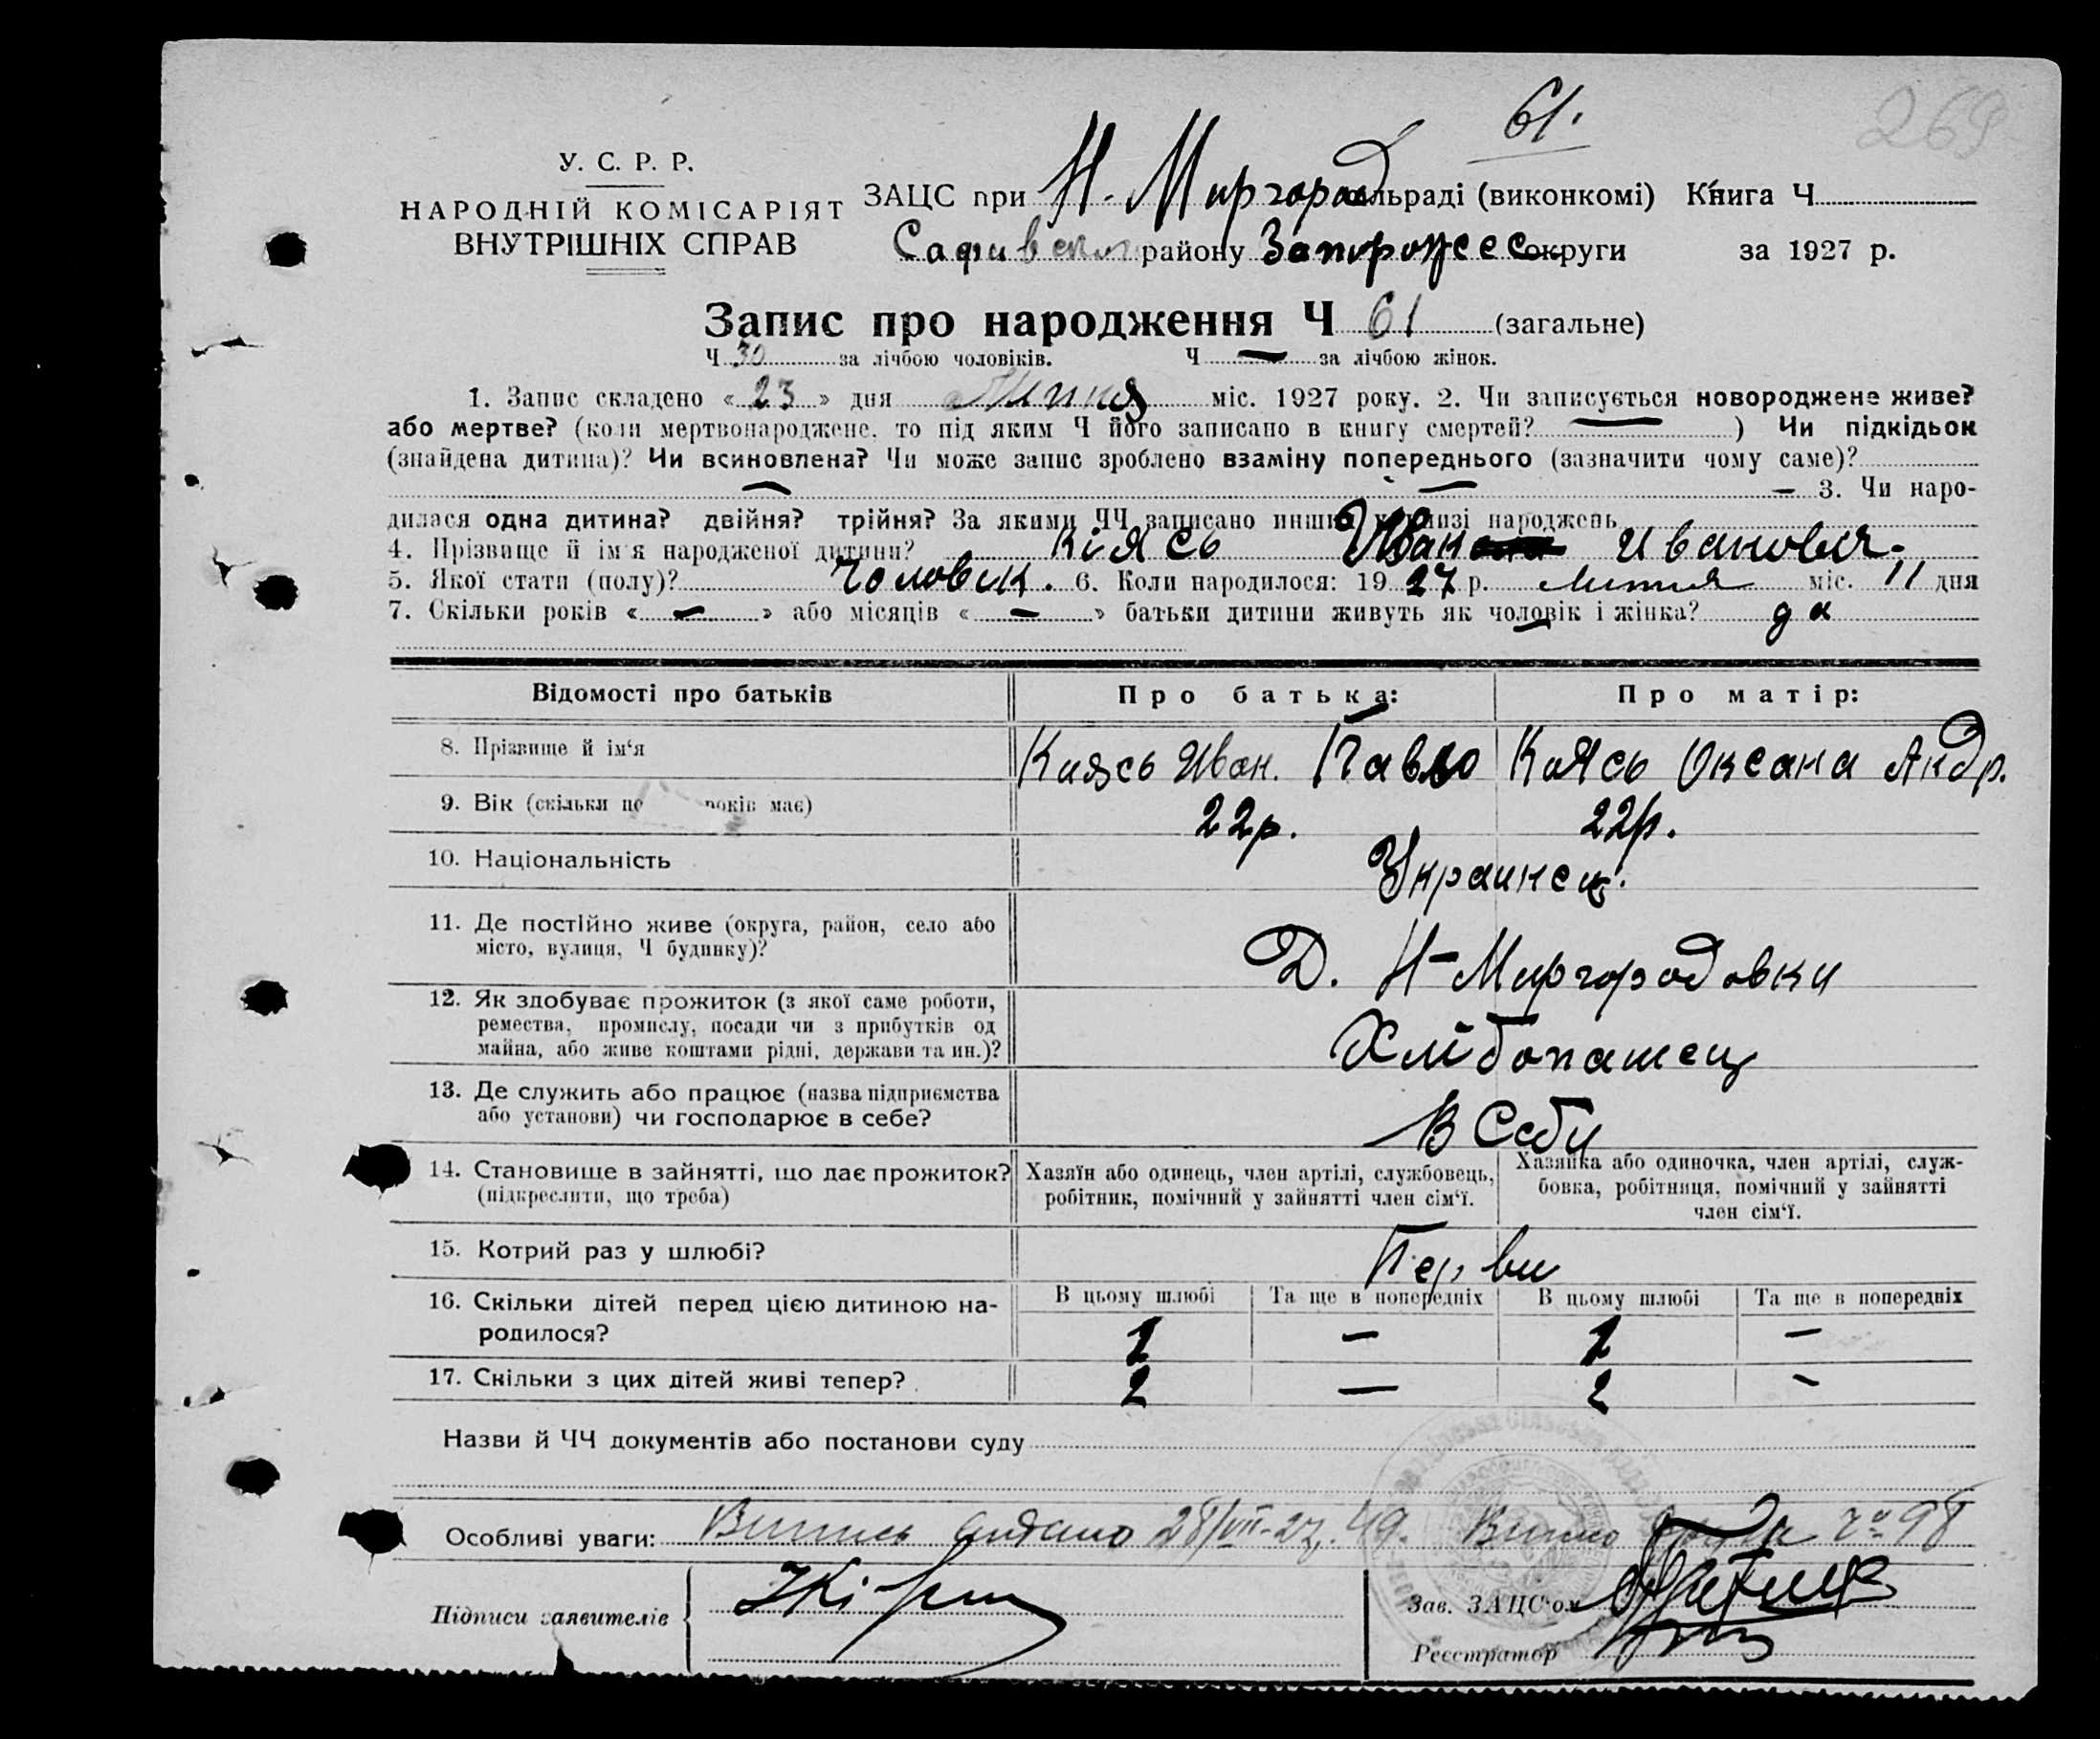 61.
269
У. С. Р. Р.
НАРОДНІЙ КОМІСАРІЯТ
ВНУТРІШНІХ СПРАВ
ЗАЦС при Н-Миргород сільраді (виконкомі) Книга Ч
району Запорожсес округи за 1927 р.
Запис про народження Ч 61 (загальне)
Ч 30 за лічбою чоловіків. Ч — за лічбою жінок.
1. Запис складено « 23 » дня Липня міс. 1927 року. 2. Чи записується новороджене живе?
або мертве? (коли мертвонароджене, то під яким Ч його записано в книгу смертей? — ) Чи підкідьок
(знайдена дитина)? Чи всиновлена? Чи може запис зроблено взаміну попереднього (зазначити чому саме)?
— — — 3. Чи наро-
дилася одна дитина? двійня? трійня? За якими ЧЧ записано инших у книзі народжень
4. Прізвище й ім'я народженої дитини? Кіясь Иван Ивановия.
5. Якої стати (полу)? Чоловік. 6. Коли народилося: 1927 р. Липня міс. 11 дня
7. Скільки років « — » або місяців « — » батьки дитини живуть як чоловік і жінка? да
Відомості про батьків Про батька: Про матір:
8. Прізвище й ім'я Киясь Иван. Павло Киясь Оксана Андр.
9. Вік (скільки по років має) 22р. 22р.
10. Національність Украинец.
11. Де постійно живе (округа, район, село або
місто, вулиця, Ч будинку)? Д. Н-Миргородовки
12. Як здобуває прожиток (з якої саме роботи,
ремества, промислу, посади чи з прибутків од
майна, або живе коштами рідні, держави та ин.)? Хлібопашец
13. Де служить або працює (назва підприємства
або установи) чи господарює в себе? В Себи
14. Становище в зайнятті, що дає прожиток?
(підкреслити, що треба)
Хазяїн або одинець, член артілі, службовець,
робітник, помічний у зайнятті член сім'ї.
Хазяйка або одиночка, член артілі, служ-
бовка, робітниця, помічний у зайнятті
член сім'ї.
15. Котрий раз у шлюбі? Перви
16. Скільки дітей перед цією дитиною на-
родилося?
В цьому шлюбі Та ще в попередніх В цьому шлюбі Та ще в попередніх
1 — 1 —
17. Скільки з цих дітей живі тепер? 2 — 2 -
Назви й ЧЧ документів або постанови суду
Особливі уваги: Випись видано 28/VII-27. 49. 98
Підписи заявителів
Зав. ЗАЦС'ом
Реєстратор